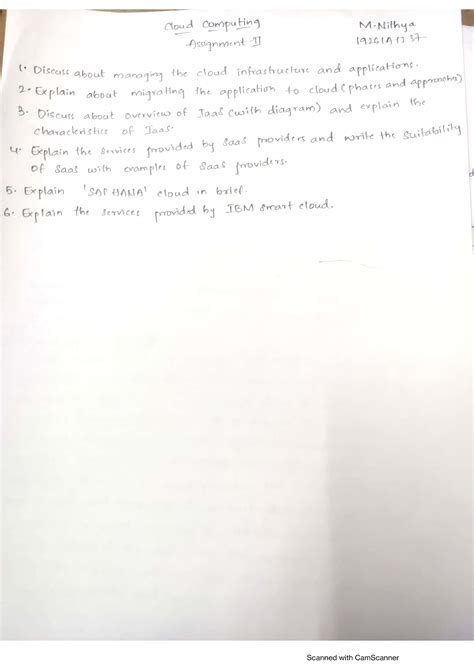 Cloud Computing
M.Nithya
Assignment-II
19261A1237
1. Discuss about managing the cloud infrastructure and applications.
2. Explain about migrating the application to cloud (phases and approaches)
3. Discuss about overview of IaaS (with diagram) and explain the
characteristics of IaaS.
4. Explain the services provided by SaaS providers and write the Suitability
of SaaS with examples of SaaS providers.
5. Explain 'SAP HANA' cloud in brief.
6. Explain the services provided by IBM smart cloud.
Scanned with CamScanner